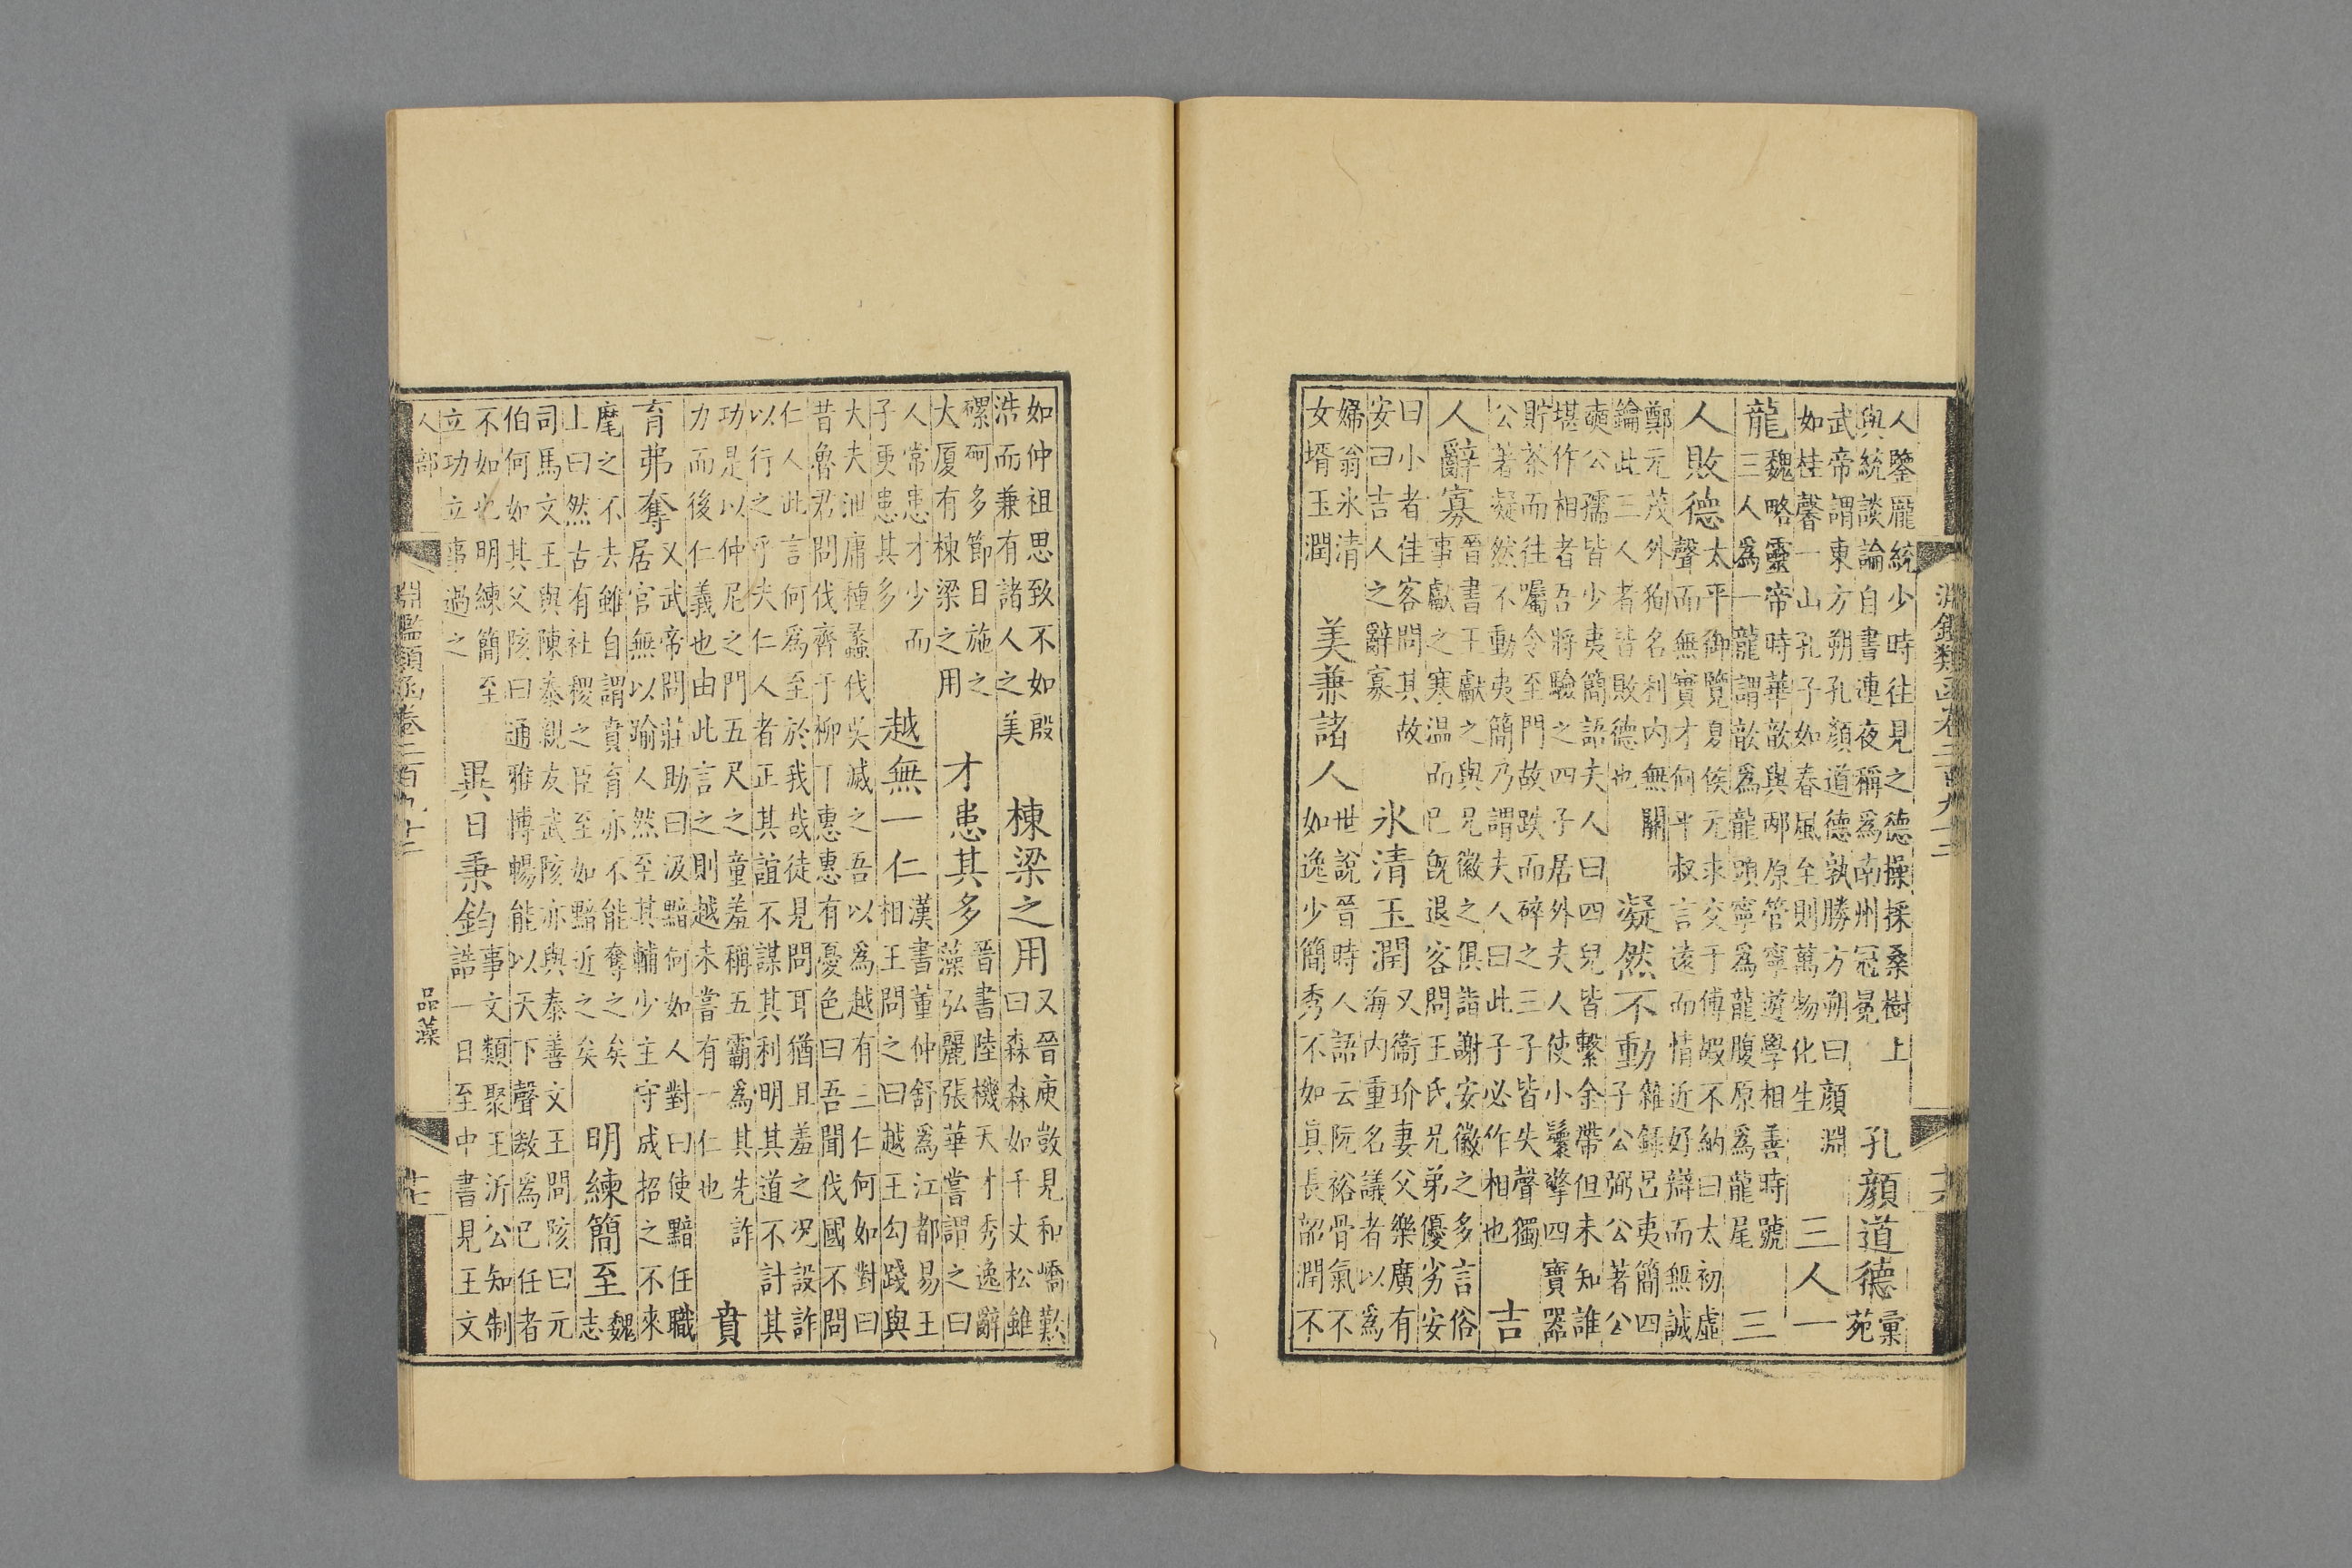 淵鑑類函卷二百九十二
十六
人鑒龐統少時往見之德操採桑樹上
與統談論自晝連夜稱爲南州冠冕
孔顏道德
彙
苑
武帝謂東方朔孔顏道德孰勝方朔曰顏淵
如桂馨一山孔子如春風至則萬物化生
三人一
龍
魏略靈帝時華歆與邴原管寧遊學相善時號
三人爲一龍謂歆爲龍頭寧爲龍腹原爲龍尾
三
人敗德
太平御覽夏侯元求交于傅嘏不納曰太初虛
聲而無實才何平叔言遠而情近好辯而無誠
鄭元茂外狥名利内無關
鑰此三人者皆敗德也
凝然不動
籍錄呂夷簡四
子公弼公著公
奭公孺皆少夷簡語夫人曰四兒皆繫金帶但未知誰
堪作相者吾將驗之四子居外夫人使小鬟擎四寶器
貯茶而往囑令至門故跌而碎之三子皆失聲獨
公著凝然不動夷簡乃謂夫人曰此子必作相也
吉
人辭寡
晉書王獻之與兄徽之俱詣謝安徽之多言俗
事獻之寒温而已旣退客問王氏兄弟優劣安
曰小者佳客問其故
安曰吉人之辭寡
氷清玉潤
又衞玠妻父樂廣有
海内重名議者以爲
婦翁氷清
女壻玉潤
美兼諸人
世說晉時人語云阮裕骨氣不
如逸少簡秀不如眞長韶潤不
如仲祖思致不如殷
浩而兼有諸人之美
棟梁之用
又晉庾敳見和嶠歎
曰森森如千丈松雖
磥砢多節目施之
大厦有棟梁之用
才患其多
晉書陸機天才秀逸辭
藻弘麗張華嘗謂之曰
人常患才少而
子更患其多
越無一仁
漢書董仲舒爲江都易王
相王問之曰越王勾踐與
大夫泄庸種蠡伐吳滅之吾以爲越有三仁何如對曰
昔魯君問伐齊于柳下惠惠有憂色曰吾聞伐國不問
仁人此言何爲至於我哉徒見問耳猶且羞之况設詐
以行之乎夫仁人者正其誼不謀其利明其道不計其
功是以仲尼之門五尺之童羞稱五霸爲其先詐
力而後仁義也由此言之則越未嘗有一仁也
賁
育弗奪
又武帝問莊助曰汲黯何如人對曰使黯任職
居官無以踰人然至其輔少主守成招之不來
麾之不去雖自謂賁育亦不能奪之矣
上曰然古有社稷之臣至如黯近之矣
明練簡至
魏
志
司馬文王與陳泰親友武陔亦與泰善文王問陔曰元
伯何如其父陔曰通雅博暢能以天下聲敎爲己任者
不如也明練簡至
立功立事過之
異日秉鈞
事文類聚王沂公知制
誥一日至中書見王文
人部
淵鑑類函卷二百九十二
品藻
十七